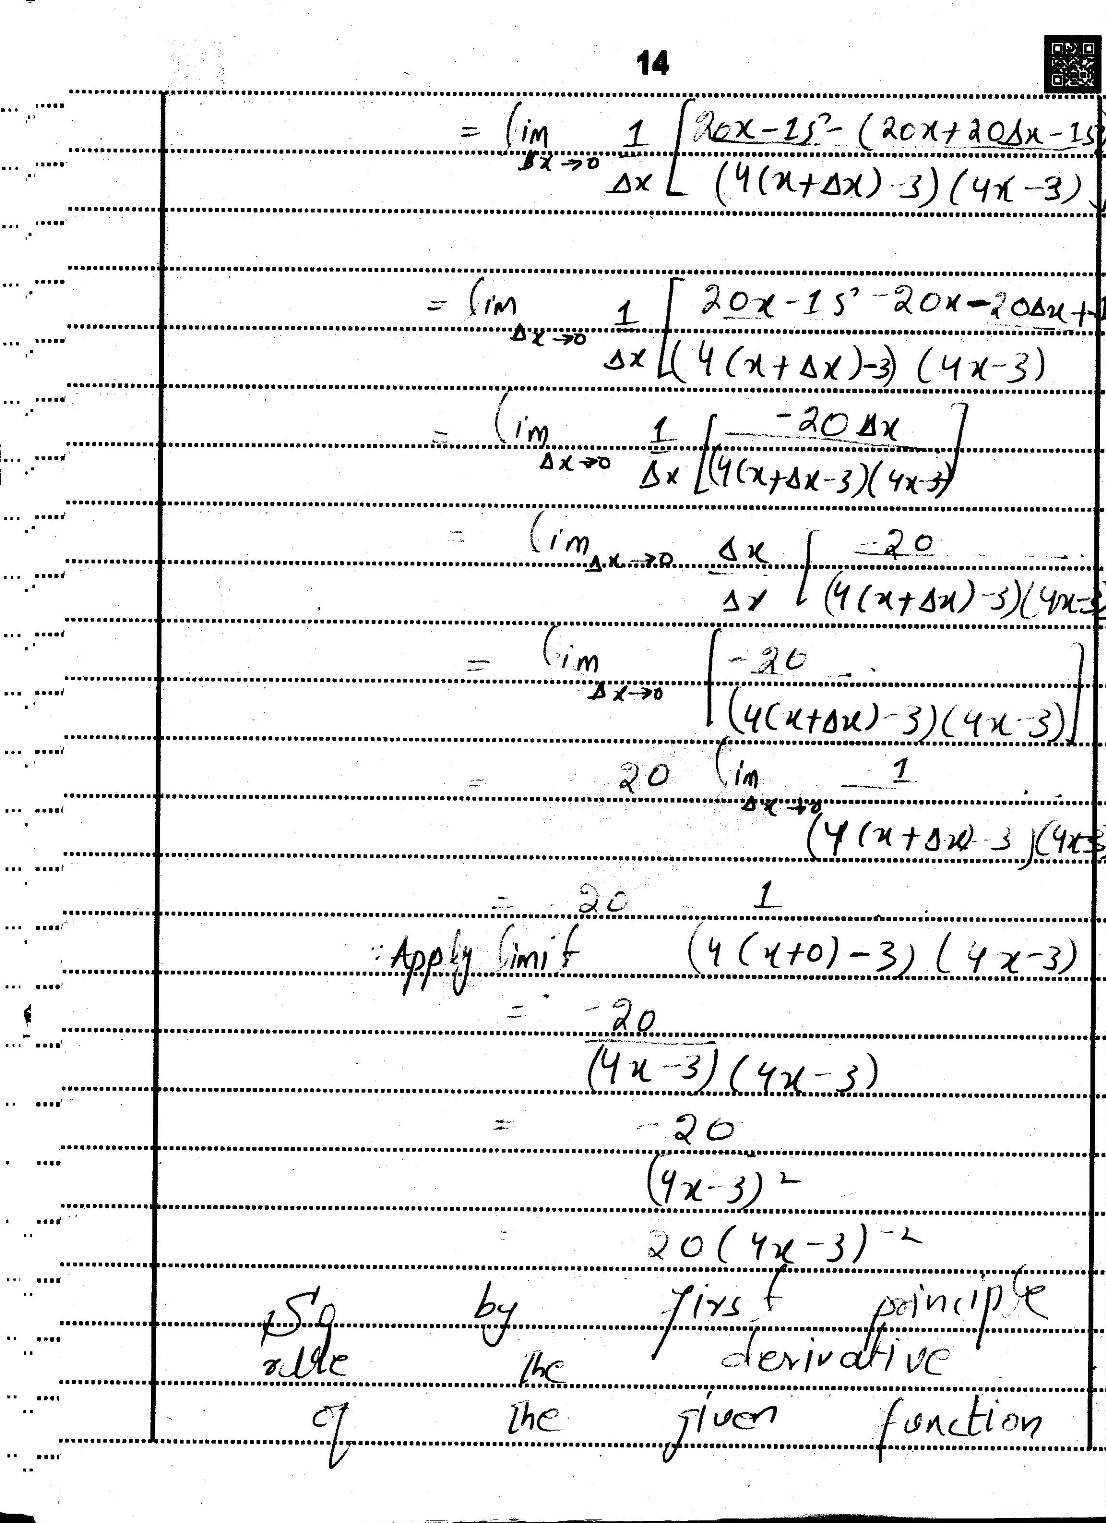 14
= lim Δx→0 1/Δx [ 20x-15 - (20x+20Δx-15) / (4(x+Δx)-3)(4x-3) ]
= lim Δx→0 1/Δx [ 20x-15 -20x-20Δx+1 / (4(x+Δx)-3)(4x-3)
= lim Δx→0 1/Δx [ -20Δx / (4(x+Δx-3)(4x-3) ]
= lim Δx→0 Δx/Δx [ -20 / (4(x+Δx)-3)(4x-3
= lim Δx→0 [ -20 / (4(x+Δx)-3)(4x-3) ]
= 20 lim Δx→0 1 / (4(x+Δx)-3)(4x-3
= 20 1
∵ Apply limit (4(x+0)-3)(4x-3)
= -20 / (4x-3)(4x-3)
= -20 / (4x-3)²
20(4x-3)⁻²
So by first principle
rule the derivative
of the given function